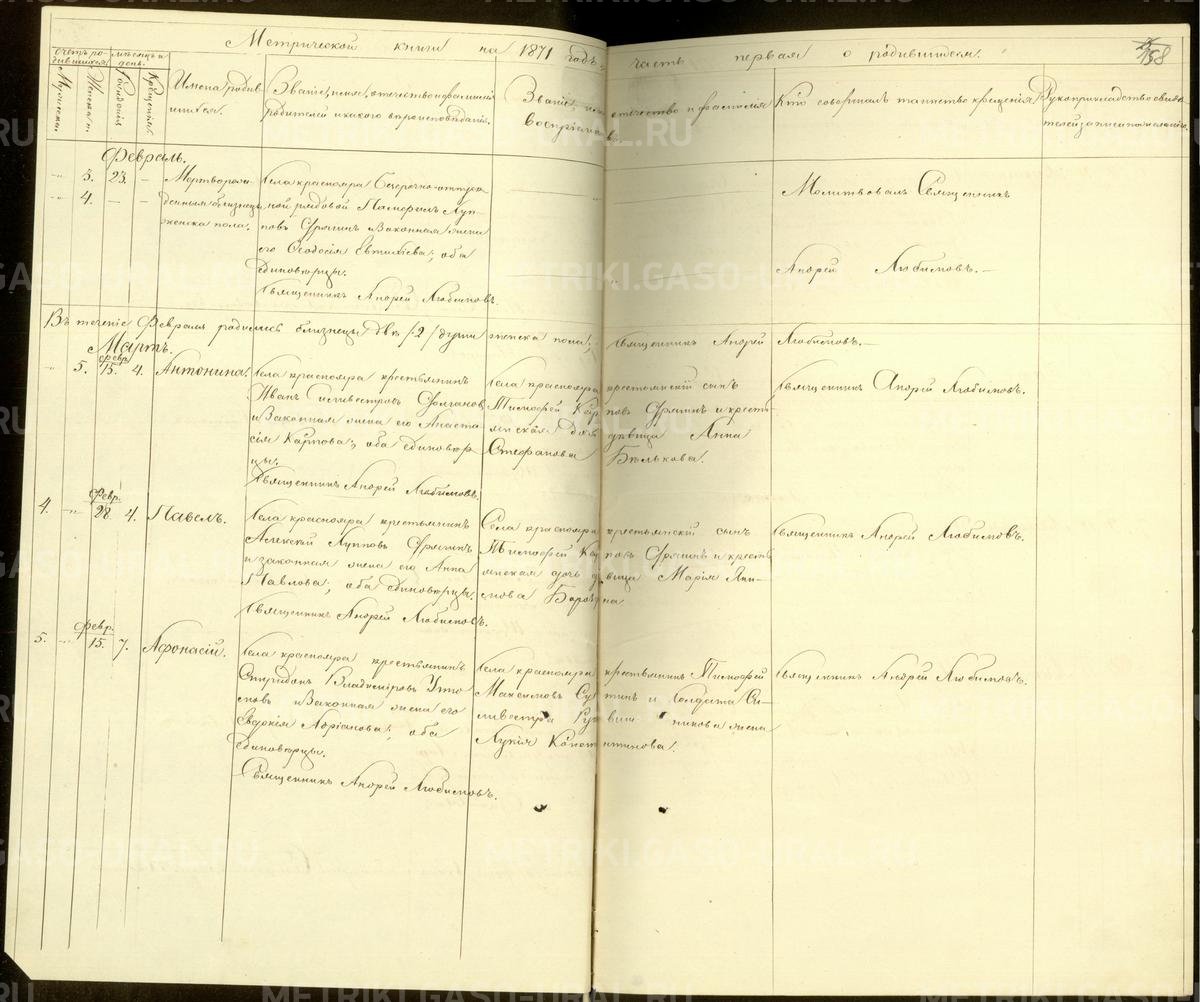 Метрической книги на 1871 годъ, часть первая о родившихся.
158
Счетъ родившихся
Мѣсяцъ и день.
Мужеска.
Женска.
Рожденія
Крещенія.
Имена родившихся.
Званіе, имя, отечество и фамилія
родителей и какого вѣроисповѣданія.
Званіе, имя, отечество и фамилія
воспріемниковъ
Кто совершалъ таинство крещенія
Рукоприкладство свидѣтелей записи по желанію.
Февраль.
3. 23. — Мертворож-
4. — — денныя близнецы
женска пола.
Села красноярa безсрочно-отпуск-
ной рядовой Памфилъ Луп-
повъ Фрягинъ и законная жена
его Ѳеодосія Евтихіева; оба
единовѣрцы.
Священникъ Андрей Любимовъ.
Молитвовалъ Священникъ
Андрей Любимовъ. —
Въ теченіе Февраля родились близнецы двѣ /2/ души женска пола; Священникъ Андрей Любимовъ. —
Мартъ.
февр.
5. 15. 4. Антонина.
Села красноярa крестьянинъ
Иванъ Силивестровъ
и законная жена его Анаста-
сія Карпова; оба единовѣр-
цы.
Священникъ Андрей Любимовъ.
Села красноярa крестьянскій сынъ
Тимофей Карповъ Фрягинъ и кресть-
янская дѣвица Анна
Стефанова Бѣлькова.
Священникъ Андрей Любимовъ.
Февр.
4. 28. 4. Павелъ.
Села красноярa крестьянинъ
Алексѣй Лупповъ Фрягинъ
и законная жена его Анна
Павлова; оба единовѣрцы.
Священникъ Андрей Любимовъ.
Села красноярa крестьянскій сынъ
Тимофей Карповъ Фрягинъ и кресть-
янская дочь дѣвица Марія
Священникъ Андрей Любимовъ.
февр.
5. 15. 7. Афонасій.
Села красноярa крестьянинъ
Спиридонъ Владиміровъ
и законная жена его
Евдокія Адріанова; оба
единовѣрцы.
Священникъ Андрей Любимовъ.
Села красноярa крестьянинъ Тимофей
Максимовъ и солдата Си-
ливестра жена
Лукія Константинова.
Священникъ Андрей Любимовъ.
METRIKI.GASO-URAL.RU